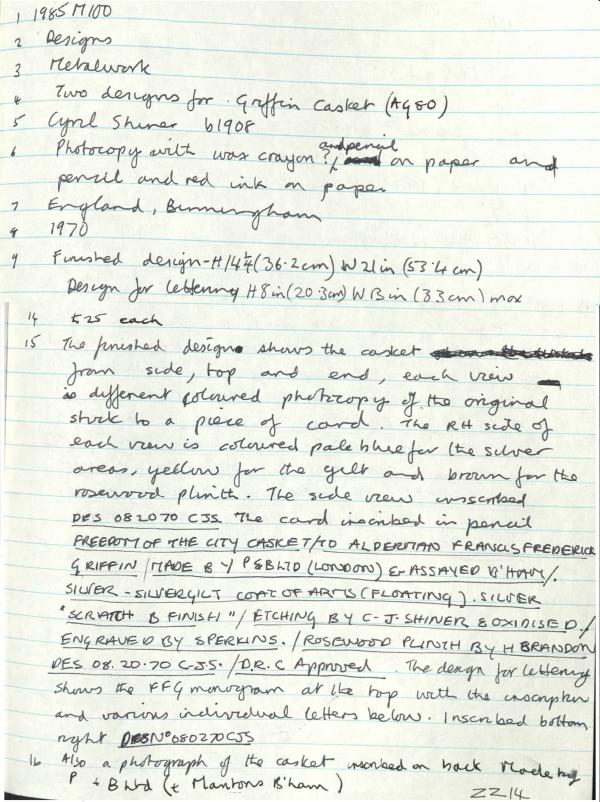 1 1985 M100
2 Designs
3 Metalwork
4 Two designs for Griffin Casket (AG80)
5 Cyril Shiner b1908
6 Photocopy with wax crayon ? and pencil on paper and
pencil and red ink on paper
7 England, Birmingham
8 1970
9 Finished design - H 14¼ (36.2cm) W 21in (53.4cm)
Design for lettering H 8in (20.3cm) W 13in (33cm) max
14 £25 each
15 The finished design shows the casket
from side, top and end, each view
is different coloured photocopy of the original
stuck to a piece of card. The RH side of
each view is coloured pale blue for the silver
areas, yellow for the gilt and brown for the
rosewood plinth. The side view inscribed
DES 082070 CJS. The card inscribed in pencil
FREEDOM OF THE CITY CASKET/TO ALDERMAN FRANCIS FREDERICK
GRIFFIN/MADE BY P&B LTD (LONDON) & ASSAYED B'HAM/.
SILVER - SILVERGILT COAT OF ARMS (FLOATING). SILVER
"SCRATCH B FINISH"/ETCHING BY C-J. SHINER & OXIDISED./
ENGRAVED BY S PERKINS./ROSEWOOD PLINTH BY H BRANDON
DES 08.20.70 C.J.S./D.R.C Approved. The design for lettering
shows the FFG monogram at the top with the inscription
and various individual letters below. Inscribed bottom
right DES Nº 080270 CJS
16 Also a photograph of the casket inscribed on back Made by
P + B Ltd (+ Mantons B'ham)
2214